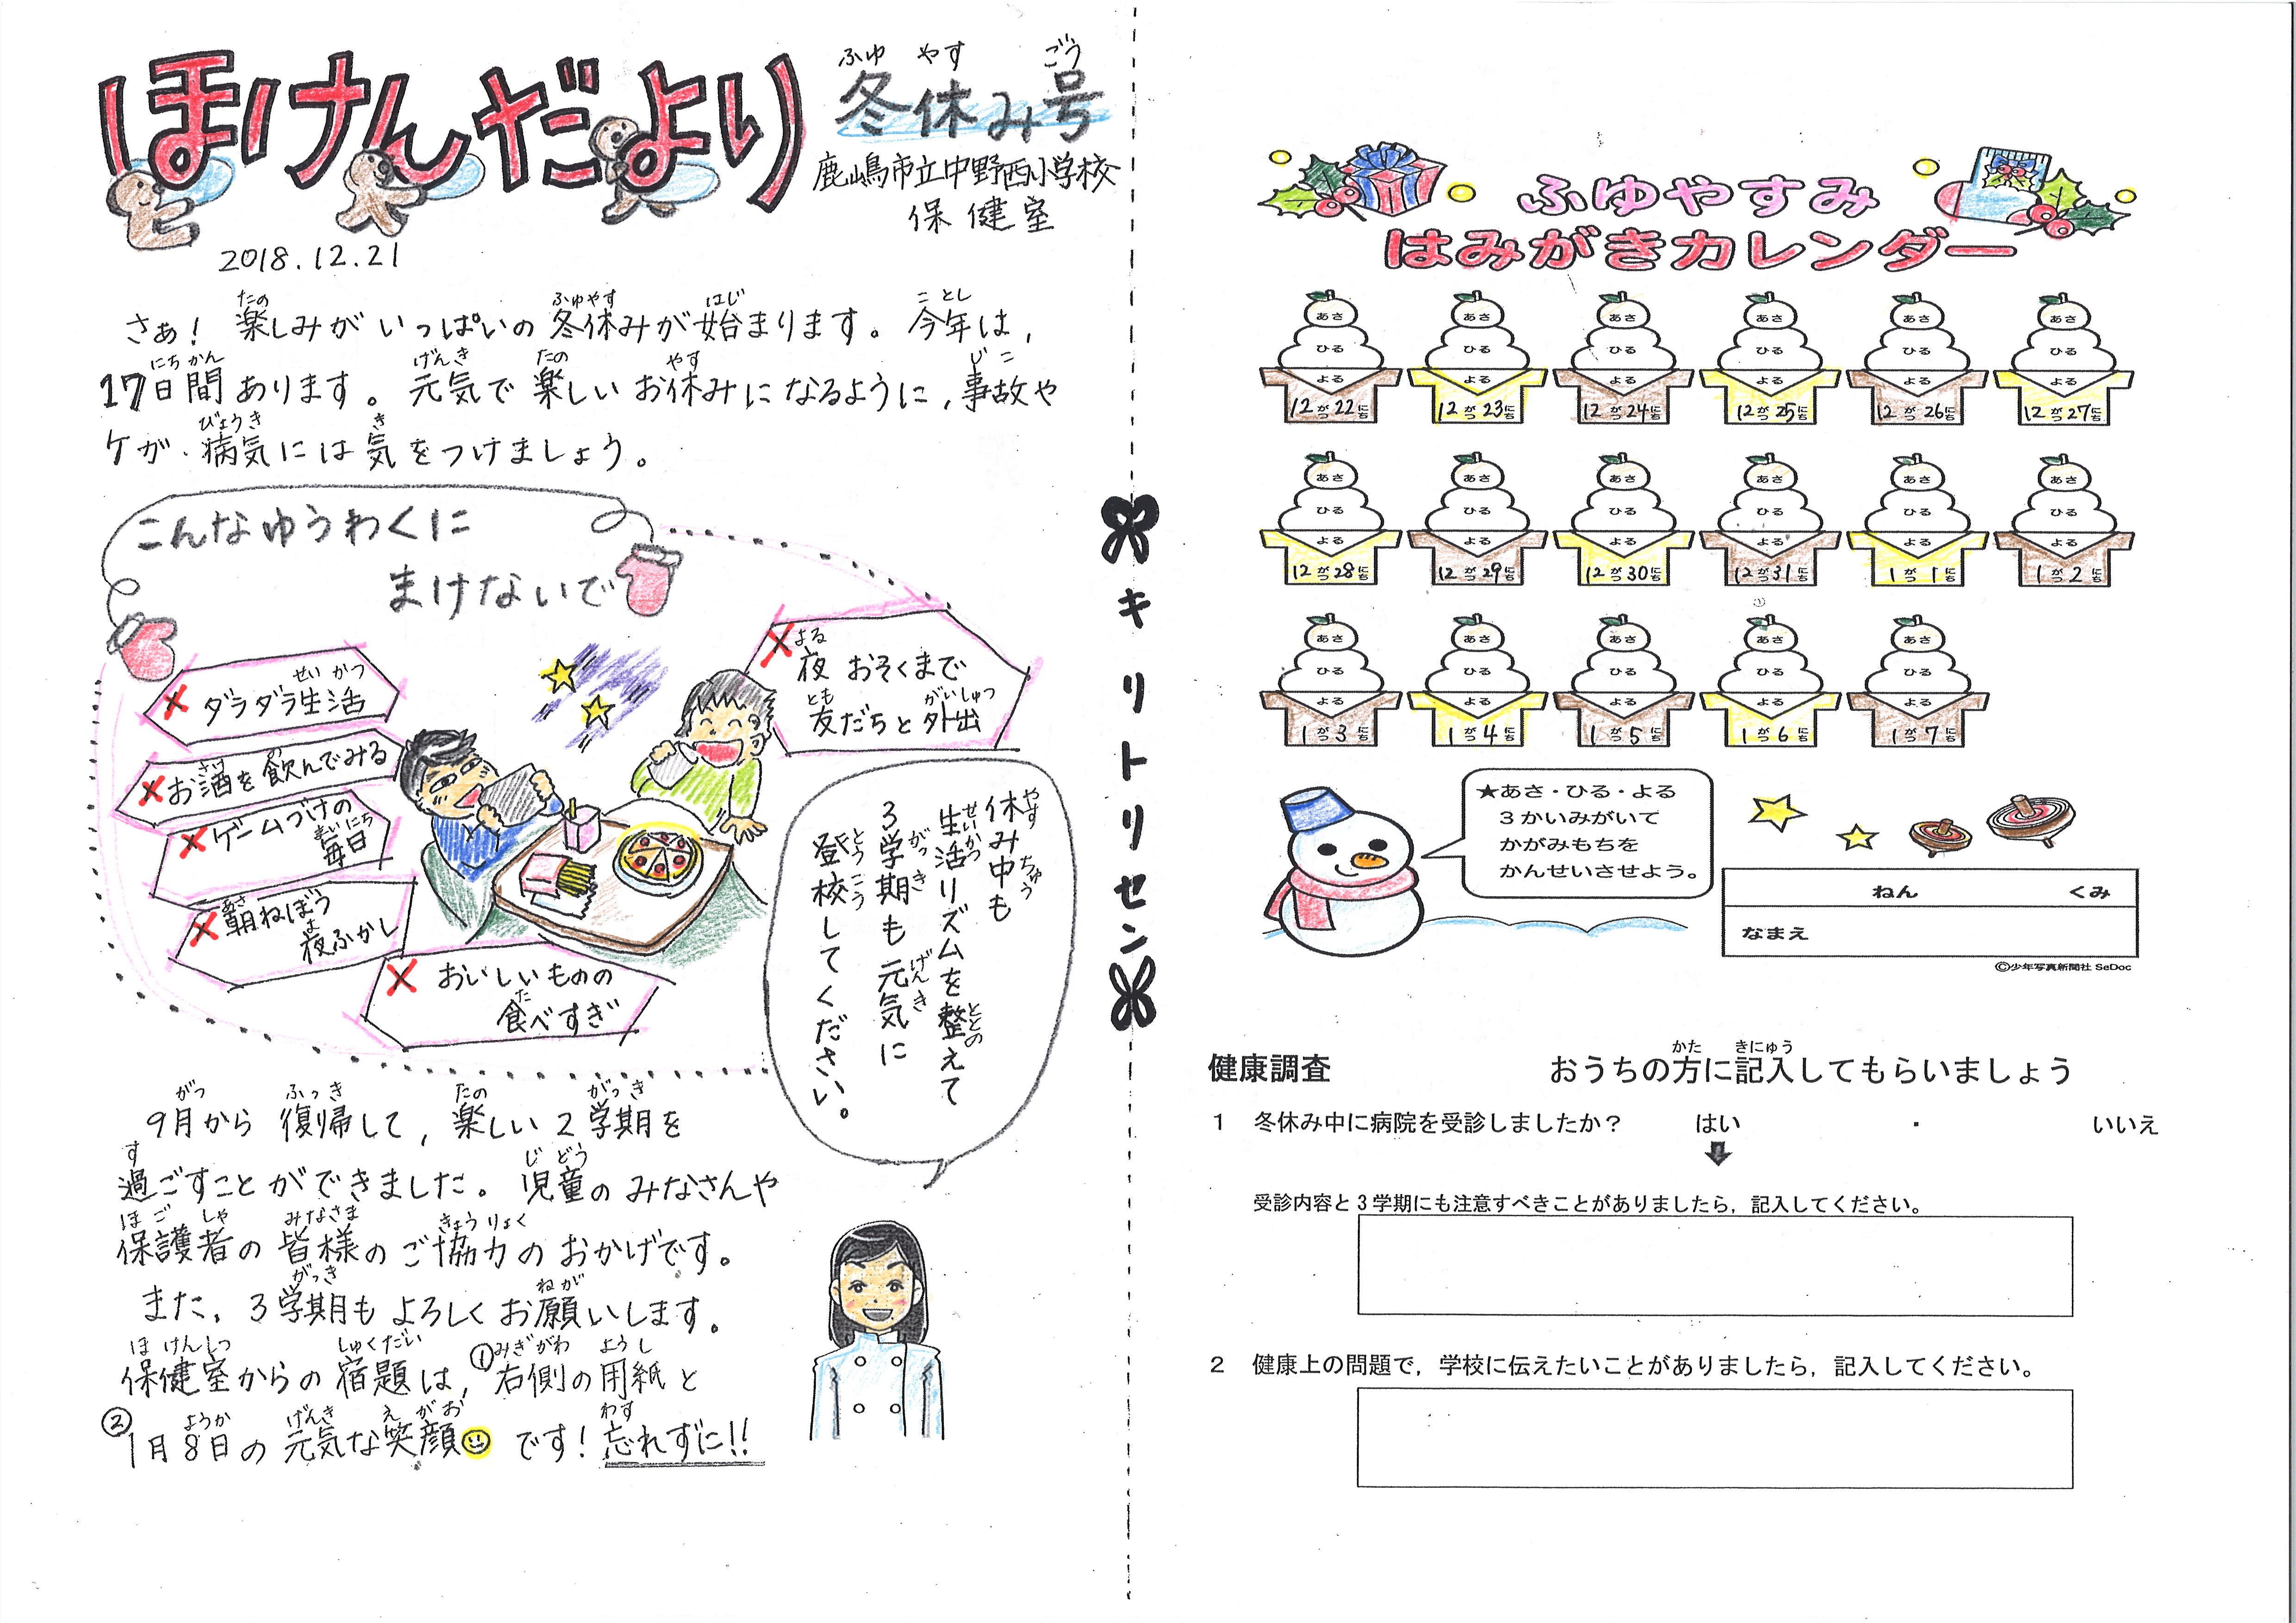 ほけんだより
ふゆ やす ごう
冬休み号
鹿嶋市立中野西小学校
保健室
2018.12.21
たの ふゆやす はじ ことし
さぁ! 楽しみがいっぱいの冬休みが始まります。今年は,
にちかん げんき たの やす じこ
17日間あります。元気で楽しいお休みになるように,事故や
びょうき き
ケガ・病気には気をつけましょう。
こんなゆうわくに
まけないで
せいかつ
× ダラダラ生活
さけ の
× お酒を飲んでみる
× ゲームづけの
まいにち
毎日
あさ
× 朝ねぼう
よ
夜ふかし
× おいしいものの
た
食べすぎ
よる
× 夜おそくまで
とも がいしゅつ
友だちと外出
やす ちゅう
休み中も
せいかつ ととの
生活リズムを整えて
がっき げんき
3学期も元気に
とうこう
登校してください。
がつ ふっき たの がっき
9月から復帰して,楽しい2学期を
す じどう
過ごすことができました。児童のみなさんや
ほごしゃ みなさま きょうりょく
保護者の皆様のご協力のおかげです。
がっき ねが
また,3学期もよろしくお願いします。
ほけんしつ しゅくだい みぎがわ ようし
保健室からの宿題は,①右側の用紙と
ようか げんき えがお わす
②1月8日の元気な笑顔です!忘れずに!!
キリトリセン
ふゆやすみ
はみがきカレンダー
あさ あさ あさ あさ あさ あさ
ひる ひる ひる ひる ひる ひる
よる よる よる よる よる よる
12がつ22にち 12がつ23にち 12がつ24にち 12がつ25にち 12がつ26にち 12がつ27にち
あさ あさ あさ あさ あさ あさ
ひる ひる ひる ひる ひる ひる
よる よる よる よる よる よる
12がつ28にち 12がつ29にち 12がつ30にち 12がつ31にち 1がつ1にち 1がつ2にち
あさ あさ あさ あさ あさ
ひる ひる ひる ひる ひる
よる よる よる よる よる
1がつ3にち 1がつ4にち 1がつ5にち 1がつ6にち 1がつ7にち
★あさ・ひる・よる
3かいみがいて
かがみもちを
かんせいさせよう。
ねん くみ
なまえ
©少年写真新聞社 SeDoc
かた きにゅう
健康調査 おうちの方に記入してもらいましょう
1 冬休み中に病院を受診しましたか? はい ・ いいえ
受診内容と3学期にも注意すべきことがありましたら,記入してください。
2 健康上の問題で,学校に伝えたいことがありましたら,記入してください。